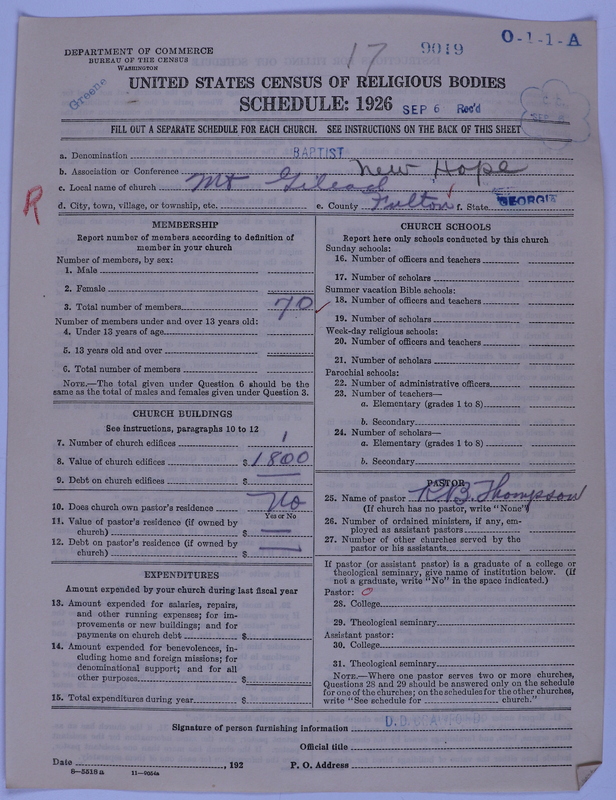 DEPARTMENT OF COMMERCE
BUREAU OF THE CENSUS
WASHINGTON
Greene
17
9019
O-1-1-A
UNITED STATES CENSUS OF RELIGIOUS BODIES
SCHEDULE: 1926
SEP 6 Rec'd
FILL OUT A SEPARATE SCHEDULE FOR EACH CHURCH. SEE INSTRUCTIONS ON THE BACK OF THIS SHEET
a. Denomination BAPTIST
b. Association or Conference New Hope
c. Local name of church Mt Gilead
d. City, town, village, or township, etc. e. County Fulton f. State GEORGIA
R
MEMBERSHIP
Report number of members according to definition of
member in your church
Number of members, by sex:
1. Male
2. Female
3. Total number of members 70
Number of members under and over 13 years old:
4. Under 13 years of age
5. 13 years old and over
6. Total number of members
NOTE.—The total given under Question 6 should be the
same as the total of males and females given under Question 3.
CHURCH BUILDINGS
See instructions, paragraphs 10 to 12
7. Number of church edifices 1
8. Value of church edifices $ 1800
9. Debt on church edifices $ —
10. Does church own pastor's residence No
Yes or No
11. Value of pastor's residence (if owned by
church) $ —
12. Debt on pastor's residence (if owned by
church) $ —
EXPENDITURES
Amount expended by your church during last fiscal year
13. Amount expended for salaries, repairs,
and other running expenses; for im-
provements or new buildings; and for
payments on church debt $
14. Amount expended for benevolences, in-
cluding home and foreign missions; for
denominational support; and for all
other purposes $
15. Total expenditures during year $
CHURCH SCHOOLS
Report here only schools conducted by this church
Sunday schools:
16. Number of officers and teachers
17. Number of scholars
Summer vacation Bible schools:
18. Number of officers and teachers
19. Number of scholars
Week-day religious schools:
20. Number of officers and teachers
21. Number of scholars
Parochial schools:
22. Number of administrative officers
23. Number of teachers—
a. Elementary (grades 1 to 8)
b. Secondary
24. Number of scholars—
a. Elementary (grades 1 to 8)
b. Secondary
PASTOR
25. Name of pastor Thompson
(If church has no pastor, write "None")
26. Number of ordained ministers, if any, em-
ployed as assistant pastors
27. Number of other churches served by the
pastor or his assistants
If pastor (or assistant pastor) is a graduate of a college or
theological seminary, give name of institution below. (If
not a graduate, write "No" in the space indicated.)
Pastor: O
28. College
29. Theological seminary
Assistant pastor:
30. College
31. Theological seminary
NOTE.—Where one pastor serves two or more churches,
Questions 28 and 29 should be answered only on the schedule
for one of the churches; on the schedules for the other churches,
write "See schedule for church."
Signature of person furnishing information D. D. CRAWFORD
Official title
Date , 192 P. O. Address
8—5518 a 11—9054a